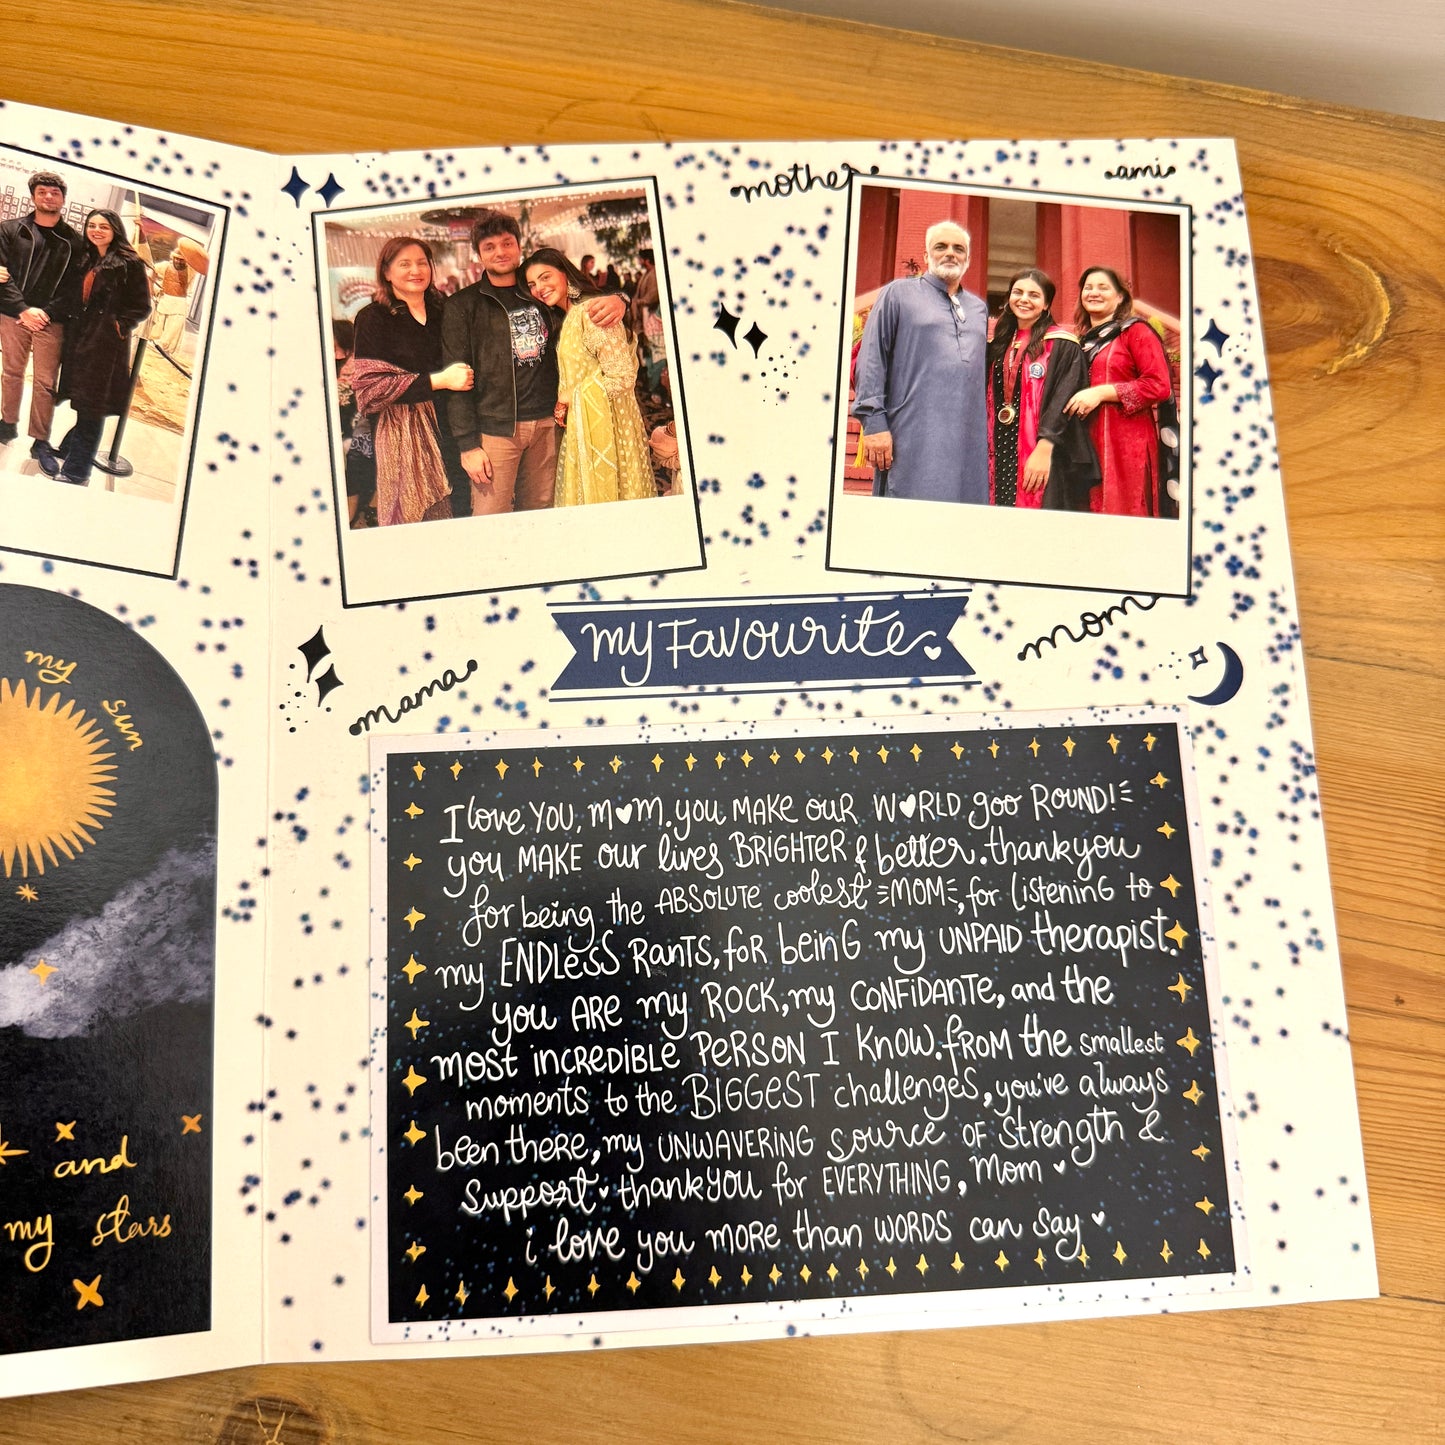 mother
ami
KENZO
my Favourite
mom
mama
my
sun
and
my stars
I love you, mom. you make our world goo round!
you make our lives brighter & better. thankyou
for being the absolute coolest mom, for listening to
my endless rants, for being my unpaid therapist.
you are my rock, my confidante, and the
most incredible person I know. from the smallest
moments to the biggest challenges, you've always
been there, my unwavering source of strength &
support thankyou for everything, mom
i love you more than words can say